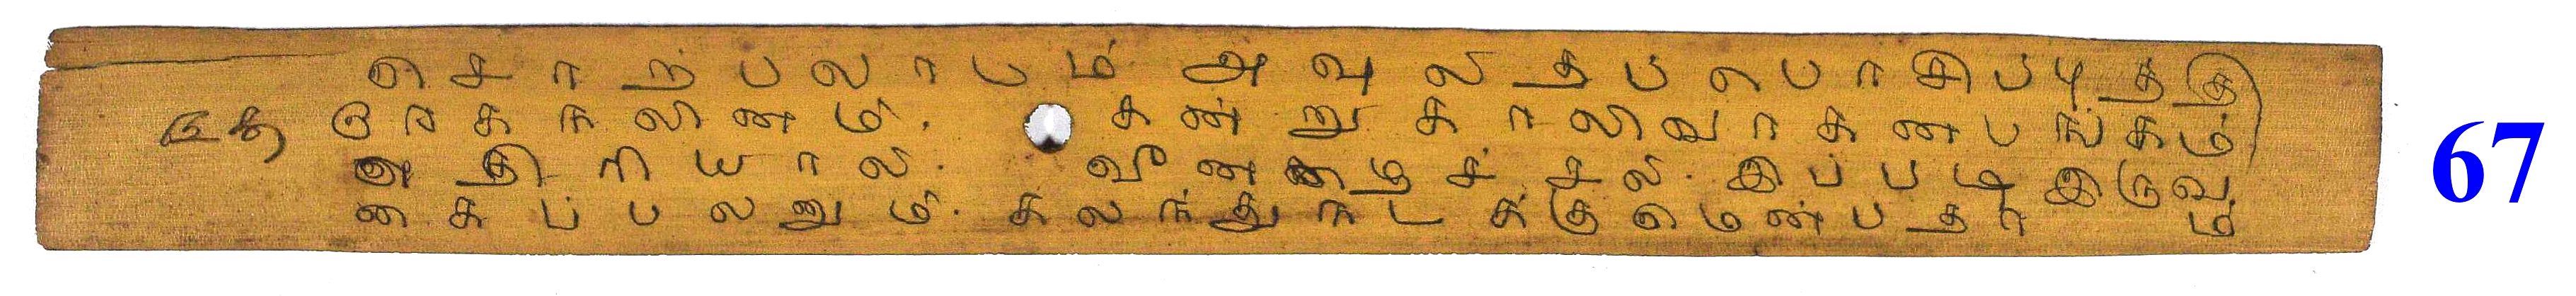 சொற்பலாபம் அவுலித்ப்பொசிப்புத்தி
ரோகநலினம். கன்றுகாலிவாகனபங்கம்
அதிரியால். வீனனழச்சல். இப்படி இருவ
கைப்பலனும். கலந்துநடக்குமென்பதாம்
67